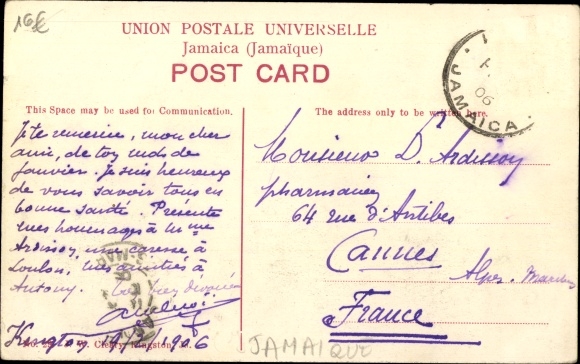 16€
UNION POSTALE UNIVERSELLE
Jamaica (Jamaïque)
POST CARD
JAMAICA
06
This Space may be used for Communication.
The address only to be written here.
Je te remercie, mon cher
ami, de toy mots de
Janvier. Je suis heureux
de vous savoir tous en
bonne santé. Présente
mes hommages à Mme
Ardisson, une caresse à
Loulou, mes amitiés à
Antony.
Kingston 1906
Monsieur D. Ardisson
pharmacien
64 rue d'Antibes
Cannes
Alpes-Maritimes
France
JAMAIQUE